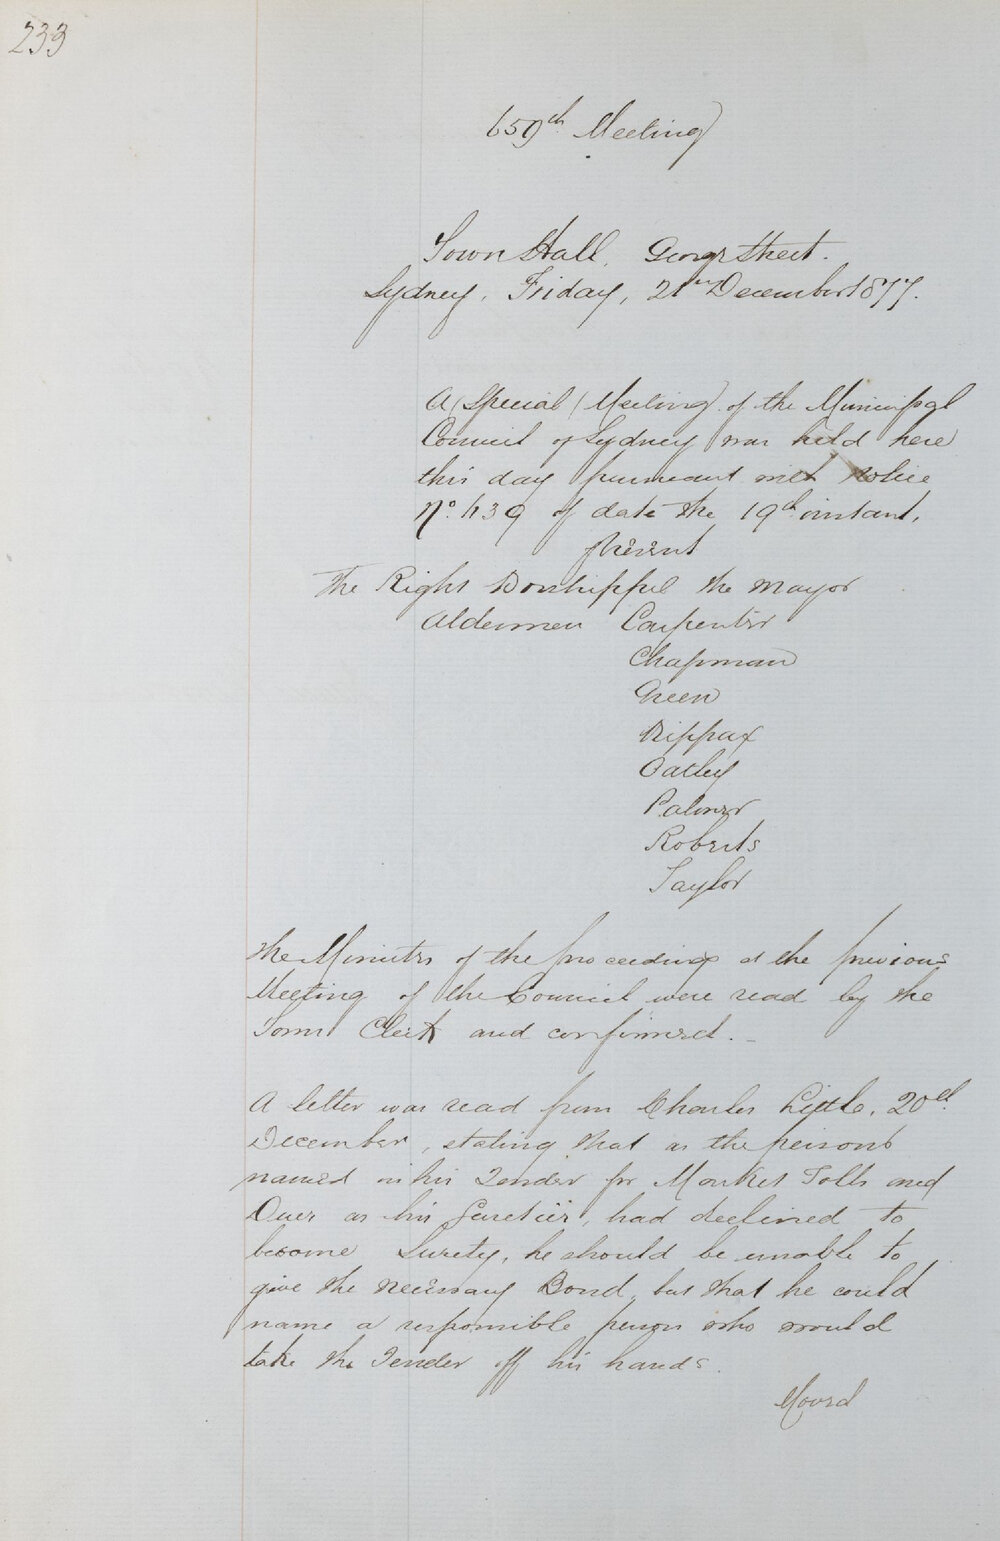 233
659th Meeting
Town Hall, George Street.
Sydney, Friday, 21st December 1877.
A Special Meeting of the Municipal
Council of Sydney was held here
this day pursuant with Notice
No. 439 of date the 19th instant.
Present
The Right Worshipful the Mayor
Aldermen Carpenter
Chapman
Green
Kippax
Oatley
Palmer
Roberts
Taylor
The Minutes of the proceedings at the previous
Meeting of the Council were read by the
Town Clerk and confirmed. -
A letter was read from Charles Little, 20th
December, stating that as the persons
named in his Tender for Market Tolls and
Dues as his Sureties, had declined to
become Surety, he should be unable to
give the necessary Bond, but that he could
name a responsible person who would
take the Tender off his hands.
Moved